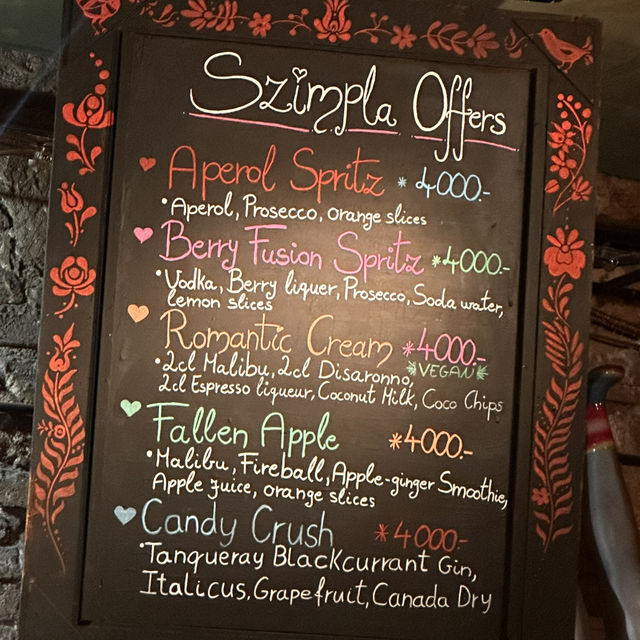 Szimpla Offers
Aperol Spritz * 4000.-
•Aperol, Prosecco, orange slices
Berry Fusion Spritz *4000.-
•Vodka, Berry liquer, Prosecco, Soda water,
lemon slices
Romantic Cream *4000.-
•2cl Malibu, 2cl Disaronno, *VEGAN*
2cl Espresso liqueur, Coconut Milk, Coco Chips
Fallen Apple *4000.-
•Malibu, Fireball, Apple-ginger Smoothie,
Apple juice, orange slices
Candy Crush *4000.-
•Tanqueray Blackcurrant Gin,
Italicus, Grapefruit, Canada Dry